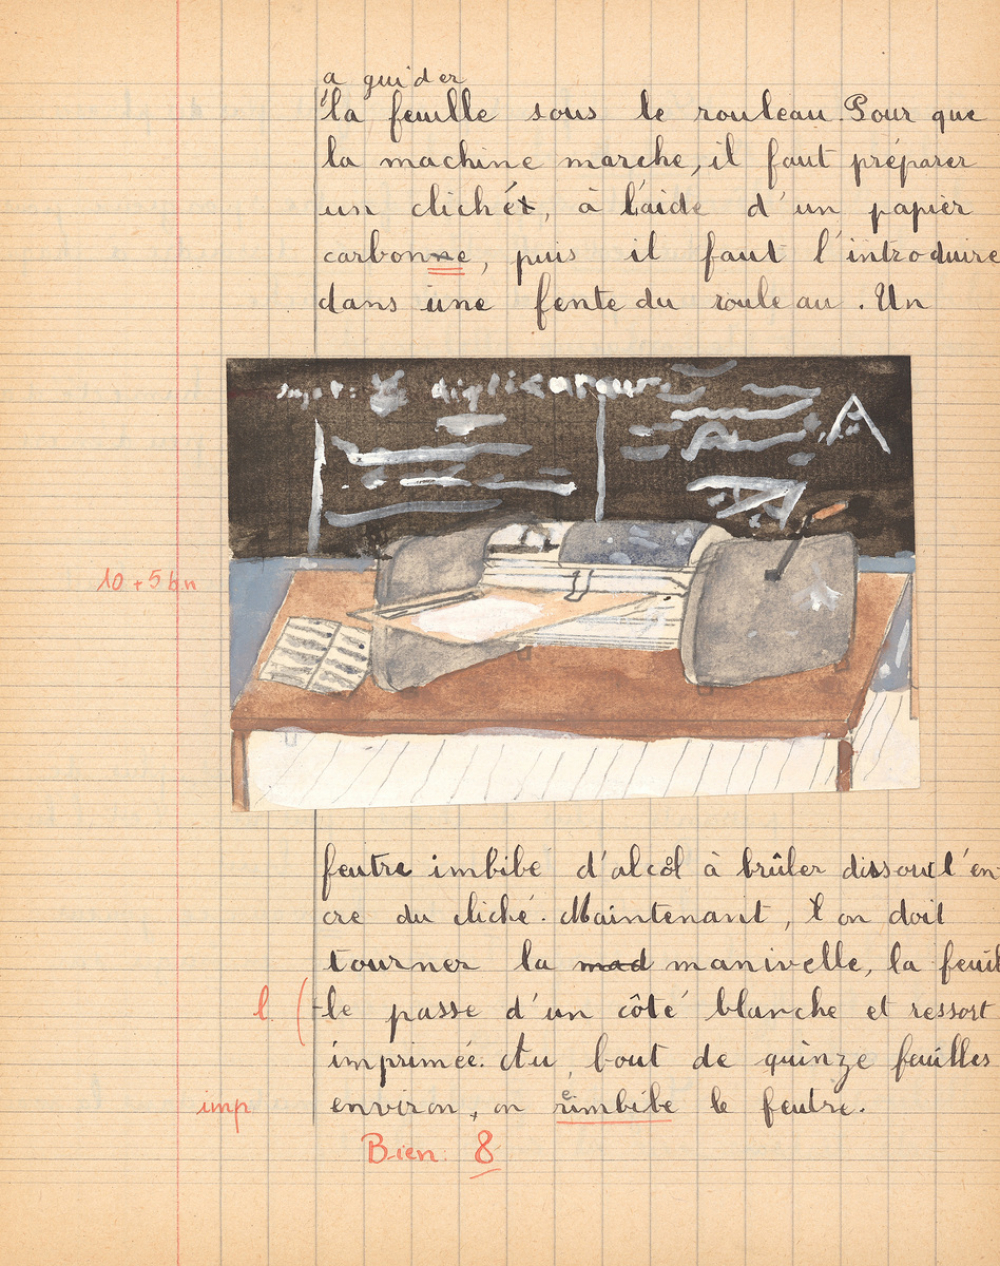 a guider
la feuille sous le rouleau. Pour que
la machine marche, il faut préparer
un cliché, à l'aide d'un papier
carbonne, puis il faut l'introduire
dans une fente du rouleau. Un
sujet: Le duplicateur
A
10 + 5 bn
feutre imbibé d'alcôl à brûler dissout l'en-
cre du cliché. Maintenant, l'on doit
tourner la mad manivelle, la feuil
l. (-le passe d'un côté blanche et ressort
imprimée. Au bout de quinze feuilles
imp environ, on réimbibe le feutre.
Bien 8